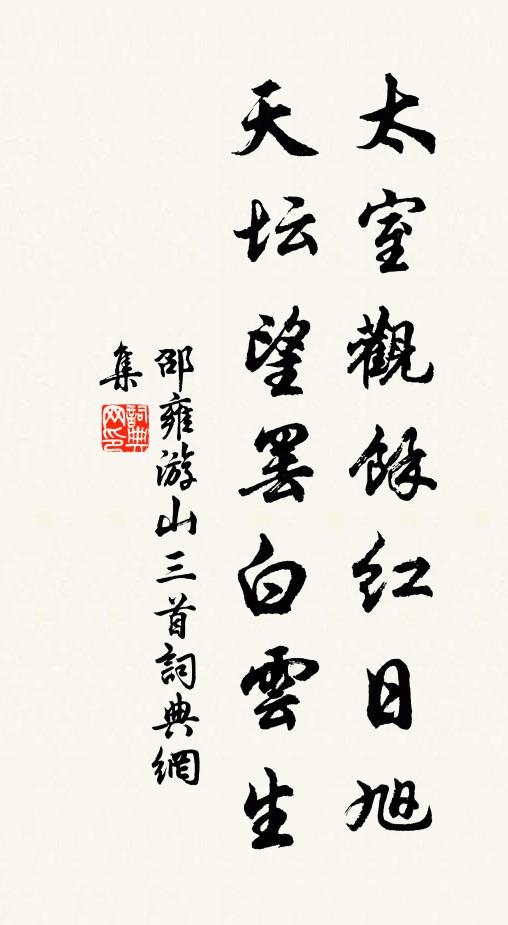 太室觀餘红日旭
天坛望罢白雲生
邵雍游山三首詞典網
集
詞典网印